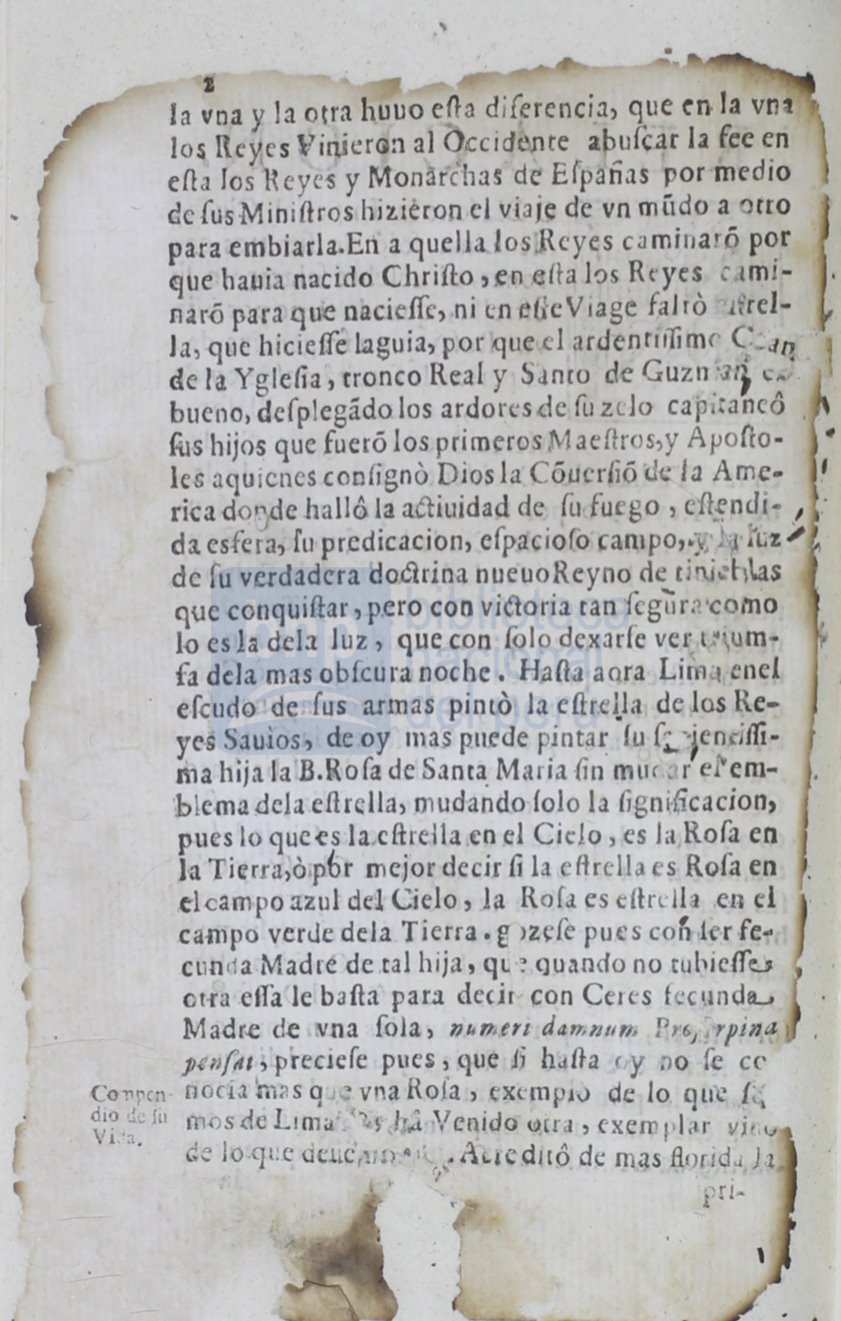 2
la vna y la otra huuo eſta diferencia, que en la vna
los Reyes Vinieron al Occidente abuſcar la fee en
eſta los Reyes y Monarchas de Eſpañas por medio
de ſus Miniſtros hizieron el viaje de vn mũdo a otro
para embiarla.En a quella los Reyes caminarõ por
que hauia nacido Chriſto, en eſta los Reyes cami-
narõ para que nacieſſe, ni en eſte Viage faltò eſtrel-
la, que hicieſſe laguia, por que el ardentiſſimo
de la Ygleſia, tronco Real y Santo de Guzman
bueno, deſplegãdo los ardores de ſu zelo capitaneô
ſus hijos que fuerõ los primeros Maeſtros, y Apoſto-
les aquienes conſignò Dios la Cõuerſiõ de la Ame-
rica donde hallô la actiuidad de ſu fuego, eſtendi-
da esfera, ſu predicacion, eſpacioſo campo, y la luz
de ſu verdadera doctrina nueuo Reyno de tinieblas
que conquiſtar, pero con victoria tan ſegura como
lo es la dela luz, que con ſolo dexarſe ver trium-
fa dela mas obſcura noche. Haſta aora Lima enel
eſcudo de ſus armas pintò la eſtrella de los Re-
yes Sauios, de oy mas puede pintar ſu
ma hija la B.Roſa de Santa Maria ſin mudar el em-
blema dela eſtrella, mudando ſolo la ſignificacion,
pues lo que es la eſtrella en el Cielo, es la Roſa en
la Tierra,ò por mejor decir ſi la eſtrella es Roſa en
el campo azul del Cielo, la Roſa es eſtrella en el
campo verde dela Tierra. gozeſe pues con ſer fe-
cunda Madre de tal hija, que quando no tubieſſe
otra eſſa le baſta para decir con Ceres fecunda
Madre de vna ſola, numeri damnum Proſerpina
penſat, precieſe pues, que ſi haſta oy no ſe co
nocia mas que vna Roſa, exemplo de lo que
mos de Lima ha Venido otra, exemplar viuo
de lo que deue . Acreditô de mas florida la
pri-
Compen-
dio de ſu
Vida.
biblioteca
nacional
del perú